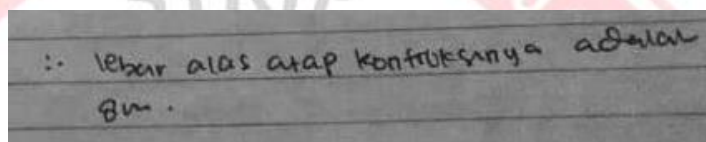 ∴ lebar alas atap kontruksinya adalah
8m.